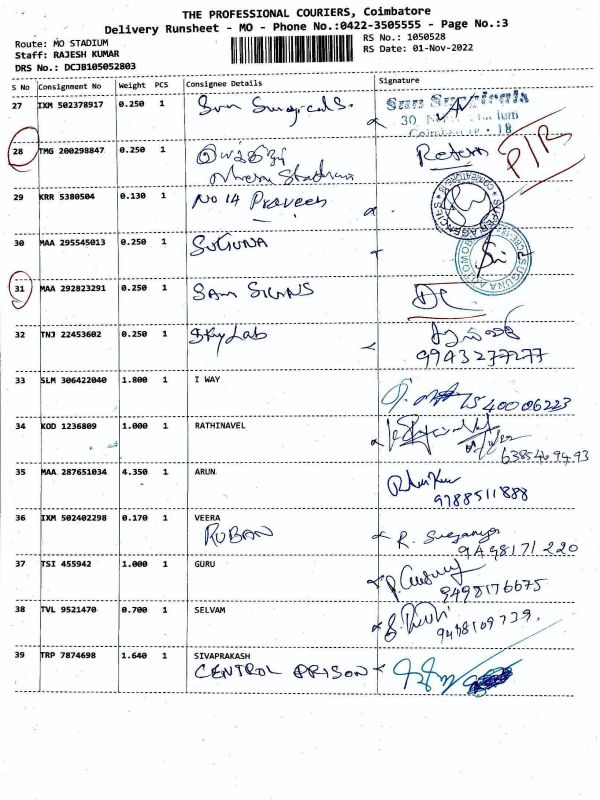 THE PROFESSIONAL COURIERS, Coimbatore
Delivery Runsheet - MO - Phone No.:0422-3505555 - Page No.:3
Route: MO STADIUM
Staff: RAJESH KUMAR
DRS No.: DCJB105052803
RS No.: 1050528
RS Date: 01-Nov-2022
S No Consignment No Weight PCS Consignee Details Signature
27 IXM 502378917 0.250 1 Sun Surgicals.
Sun Surgicals
30
Coimbatore - 18
28 TMG 200298847 0.250 1
Nehru Stadium
Retern
P/R
29 KRR 5380504 0.130 1 No 14 Praveen
SUPER AGENCIES
30 MAA 295545013 0.250 1 SUGUNA
SUGUNA
31 MAA 292823291 0.250 1 SAM SIGNS
DC
32 TNJ 22453602 0.250 1 Sky Lab
9943277277
33 SLM 306422040 1.800 1 I WAY
7540006223
34 KOD 1236809 1.000 1 RATHINAVEL
6385469493
35 MAA 287651034 4.350 1 ARUN
9788511888
36 IXM 502402298 0.170 1 VEERA
RUBAN
R.
9498171220
37 TSI 455942 1.000 1 GURU
9498176675
38 TVL 9521470 0.700 1 SELVAM
9498109739.
39 TRP 7874698 1.640 1 SIVAPRAKASH
CENTROL PRISON